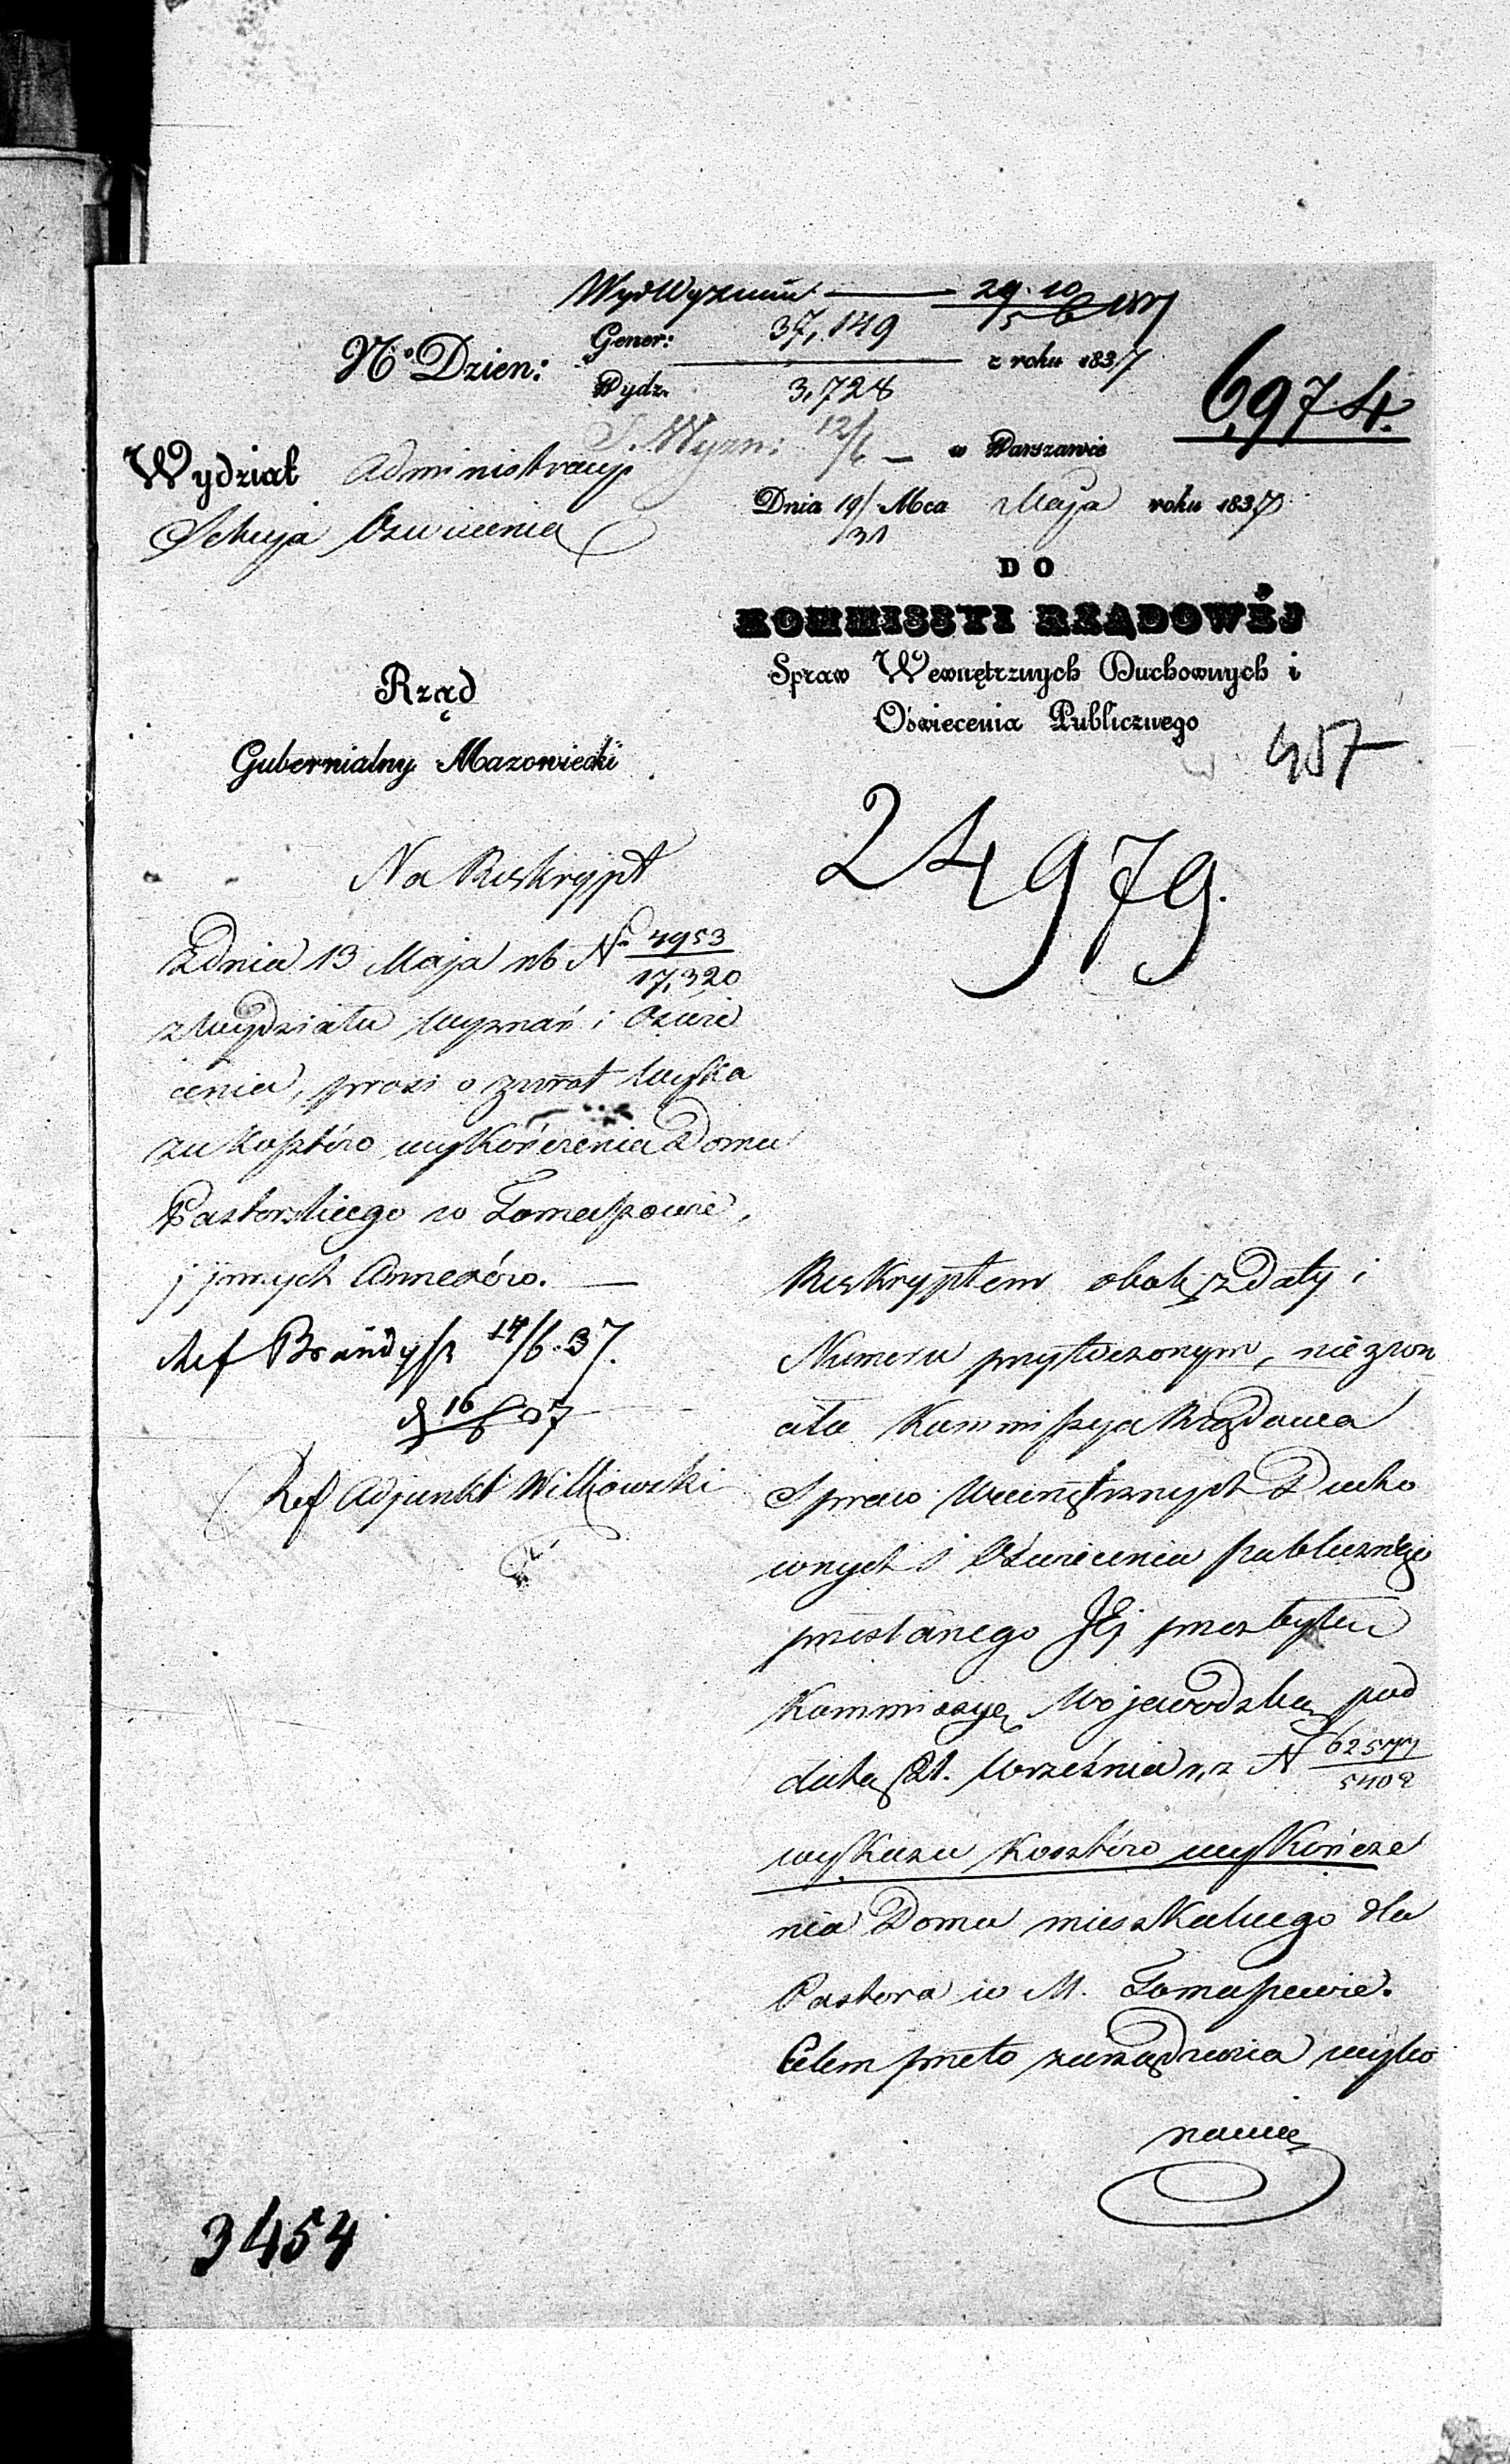 29. 10
Gener: 37,149
No Dzien:
z roku 1837
Wydz. 3,728
6,974.
S. Wyzn: 12/6
w Warszawie
Wydział Administracyj
Dnia 19/31 Mca Maja roku 1837
Sekcyja Oswiecenia
DO
KOMMISSYI RZĄDOWÉJ
Spraw Wewnętrznych Duchownych i
Oświecenia Publicznego
Rząd
Gubernialny Mazowiecki
457
24979.
Na Reskrypt
z dnia 13 Maja rb No 4953/17,320
z Wydziału Wyznań i Oswie
cenia, prosi o zwrot Wyka
zu Kosztów wykończenia Domu
Pastorskiego w Tomaszowie,
j jnnych Annexów. —
Ref Brandysz 14/6. 37.
16/6 37
Ref Adjunkt Witkowski
Reskryptem obok z Daty i
Numeru przytoczonym, nie zwró
ciła Kommissyja Rządowa
Spraw Wewnętrznych Ducho
wnych i Oświecenia publicznego
przesłanego Jéj przez byłą
Kommissyę Wojewodzką pod
datą 21. Września r, z N 62577/5402
wykazu Kosztów wykończe
nia Domu mieszkalnego dla
Pastora w M. Tomaszowie.
Celem przeto zarządzenia wyko
nania
3454